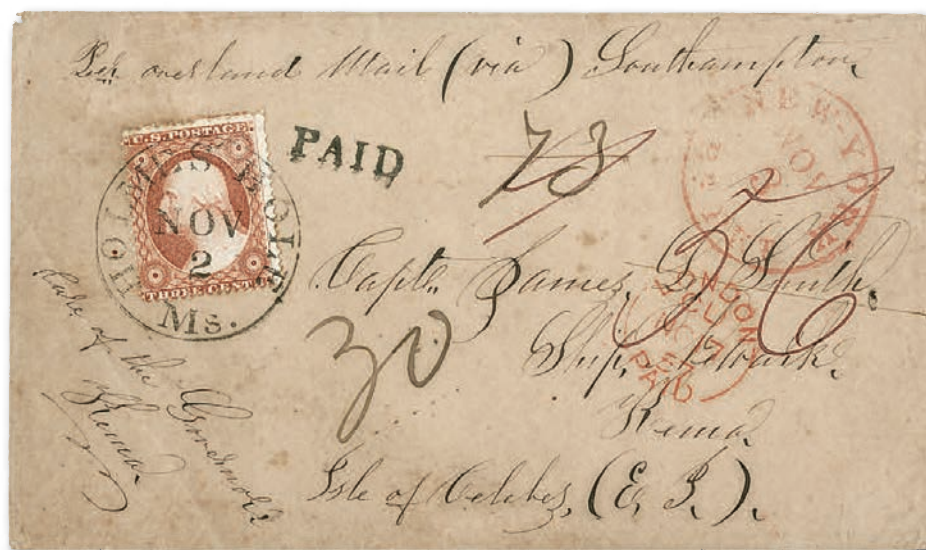 Per overland Mail (via) Southampton,
U.S. POSTAGE
THREE CENTS
HOLMES HOLE
NOV
2
Ms.
PAID
73
NEW-YORK
NOV
30
Capt. James D. Smith.
Ship,
Kema.
Isle of Celebes, (E. I.).
Care of the Governor
Kema
LONDON
PAID